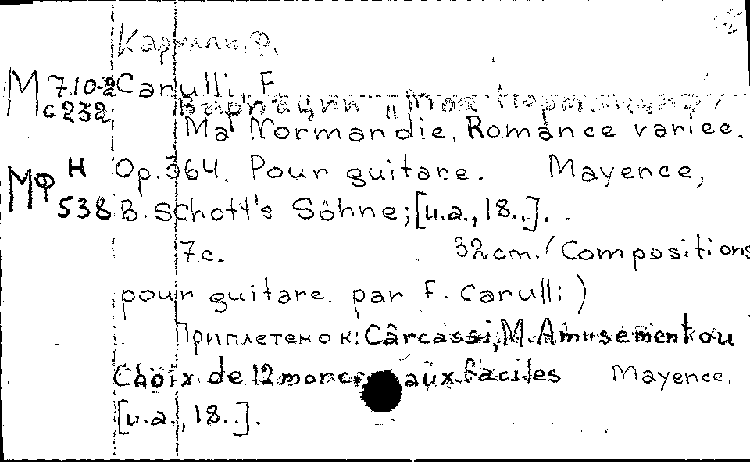 Карулли, Ф.
М 710-2 Carulli, F.
с232 Вариации "Моя Нормандия"
Ma Normandie. Romance variée.
МФ Н Op. 364. Pour guitare. Mayence,
538 B. Schott's Söhne; [u.a., 18..].
7с. 32cm. (Compositions
pour guitare par F. Carulli)
Приплетено к: Carcassi, M. Amusement ou
Choix de 12 morceaux faciles Mayence,
[u.a., 18..].